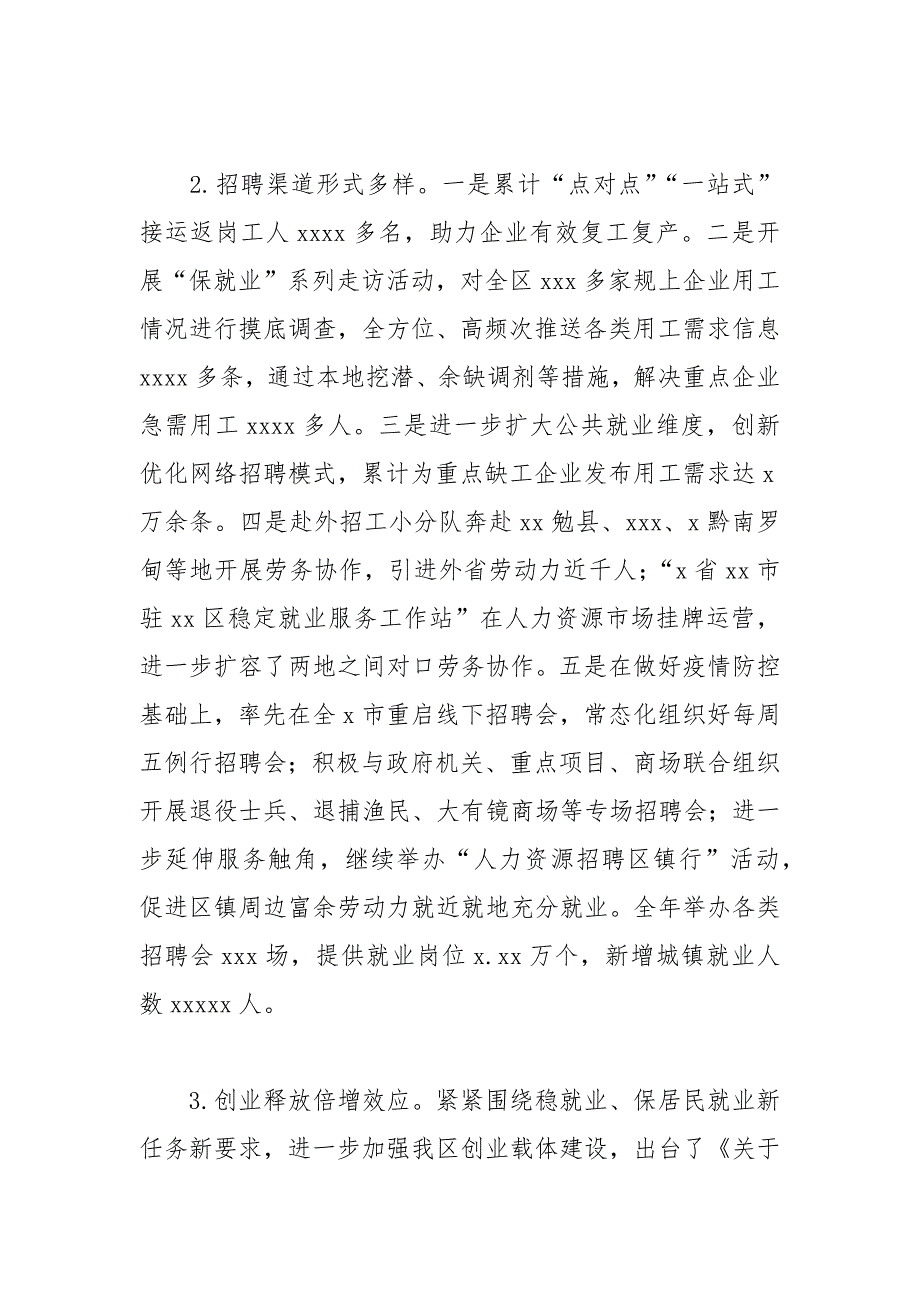 2.招聘渠道形式多样。一是累计“点对点”“一站式”
接运返岗工人 xxxx 多名，助力企业有效复工复产。二是开
展“保就业”系列走访活动，对全区 xxx 多家规上企业用工
情况进行摸底调查，全方位、高频次推送各类用工需求信息
xxxx 多条，通过本地挖潜、余缺调剂等措施，解决重点企业
急需用工 xxxx 多人。三是进一步扩大公共就业维度，创新
优化网络招聘模式，累计为重点缺工企业发布用工需求达 x
万余条。四是赴外招工小分队奔赴 xx 勉县、xxx、x 黔南罗
甸等地开展劳务协作，引进外省劳动力近千人；“x 省 xx 市
驻 xx 区稳定就业服务工作站”在人力资源市场挂牌运营，
进一步扩容了两地之间对口劳务协作。五是在做好疫情防控
基础上，率先在全 x 市重启线下招聘会，常态化组织好每周
五例行招聘会；积极与政府机关、重点项目、商场联合组织
开展退役士兵、退捕渔民、大有镜商场等专场招聘会；进一
步延伸服务触角，继续举办“人力资源招聘区镇行”活动，
促进区镇周边富余劳动力就近就地充分就业。全年举办各类
招聘会 xxx 场，提供就业岗位 x.xx 万个，新增城镇就业人
数 xxxxx 人。
3.创业释放倍增效应。紧紧围绕稳就业、保居民就业新
任务新要求，进一步加强我区创业载体建设，出台了《关于